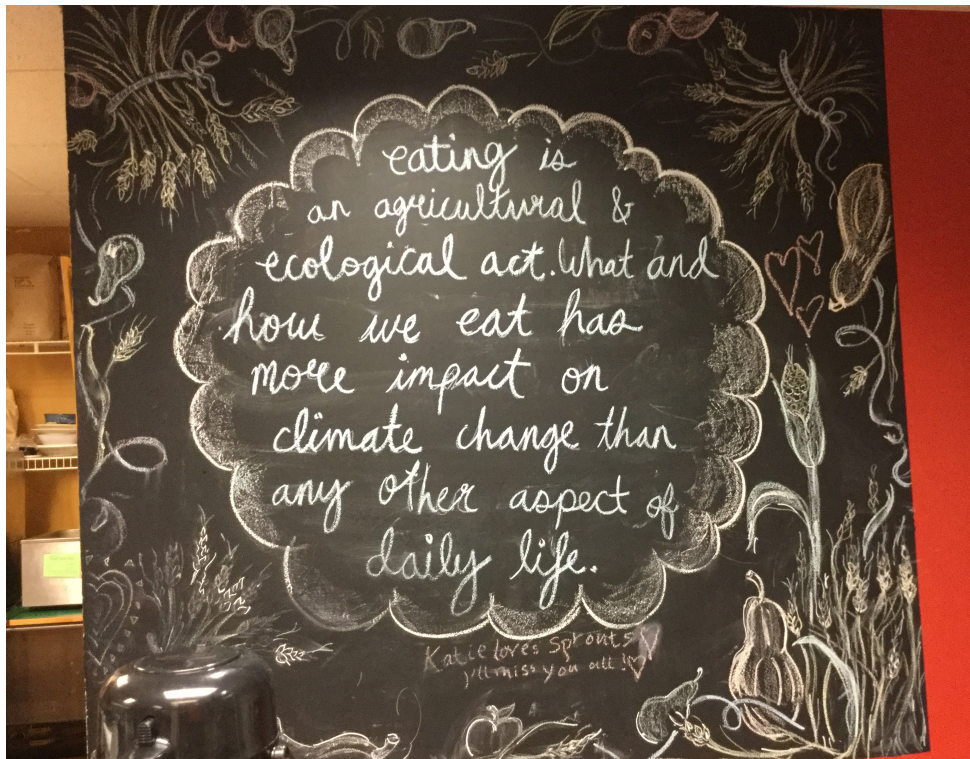 eating is
an agricultural &
ecological act. What and
how we eat has
more impact on
climate change than
any other aspect of
daily life.
Katie loves Sprouts
I'll miss you all!